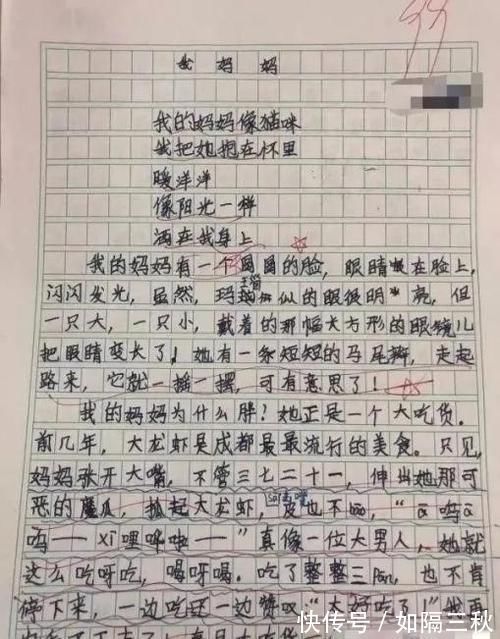 99
我 妈 妈
我的妈妈像猫咪
我把她抱在怀里
暖洋洋
像阳光一样
洒在我身上
我的妈妈有一个圆圆的脸，眼睛嵌在脸上，
闪闪发光，虽然，玛瑙似的眼很明亮，但
一只大，一只小，戴着的那幅大方形的眼镜儿
把眼睛变长了！她有一条短短的马尾辫，走起
路来，它就一摇一摆，可有意思了！
我的妈妈为什么胖？她正是一个大吃货。
前几年，大龙虾是成都最最流行的美食。只见，
妈妈张开大嘴，不管三七二十一，伸出她那可
恶的魔瓜，抓起大龙虾，皮也不bāo，“ā呜ā
呜——xī哩哗啦——”真像一位大男人，她就
这么吃呀吃，喝呀喝。吃了整整三Pán，也不肯
停下来，一边吃还一边赞叹“太好吃了！”我
快传号／如隔三秋